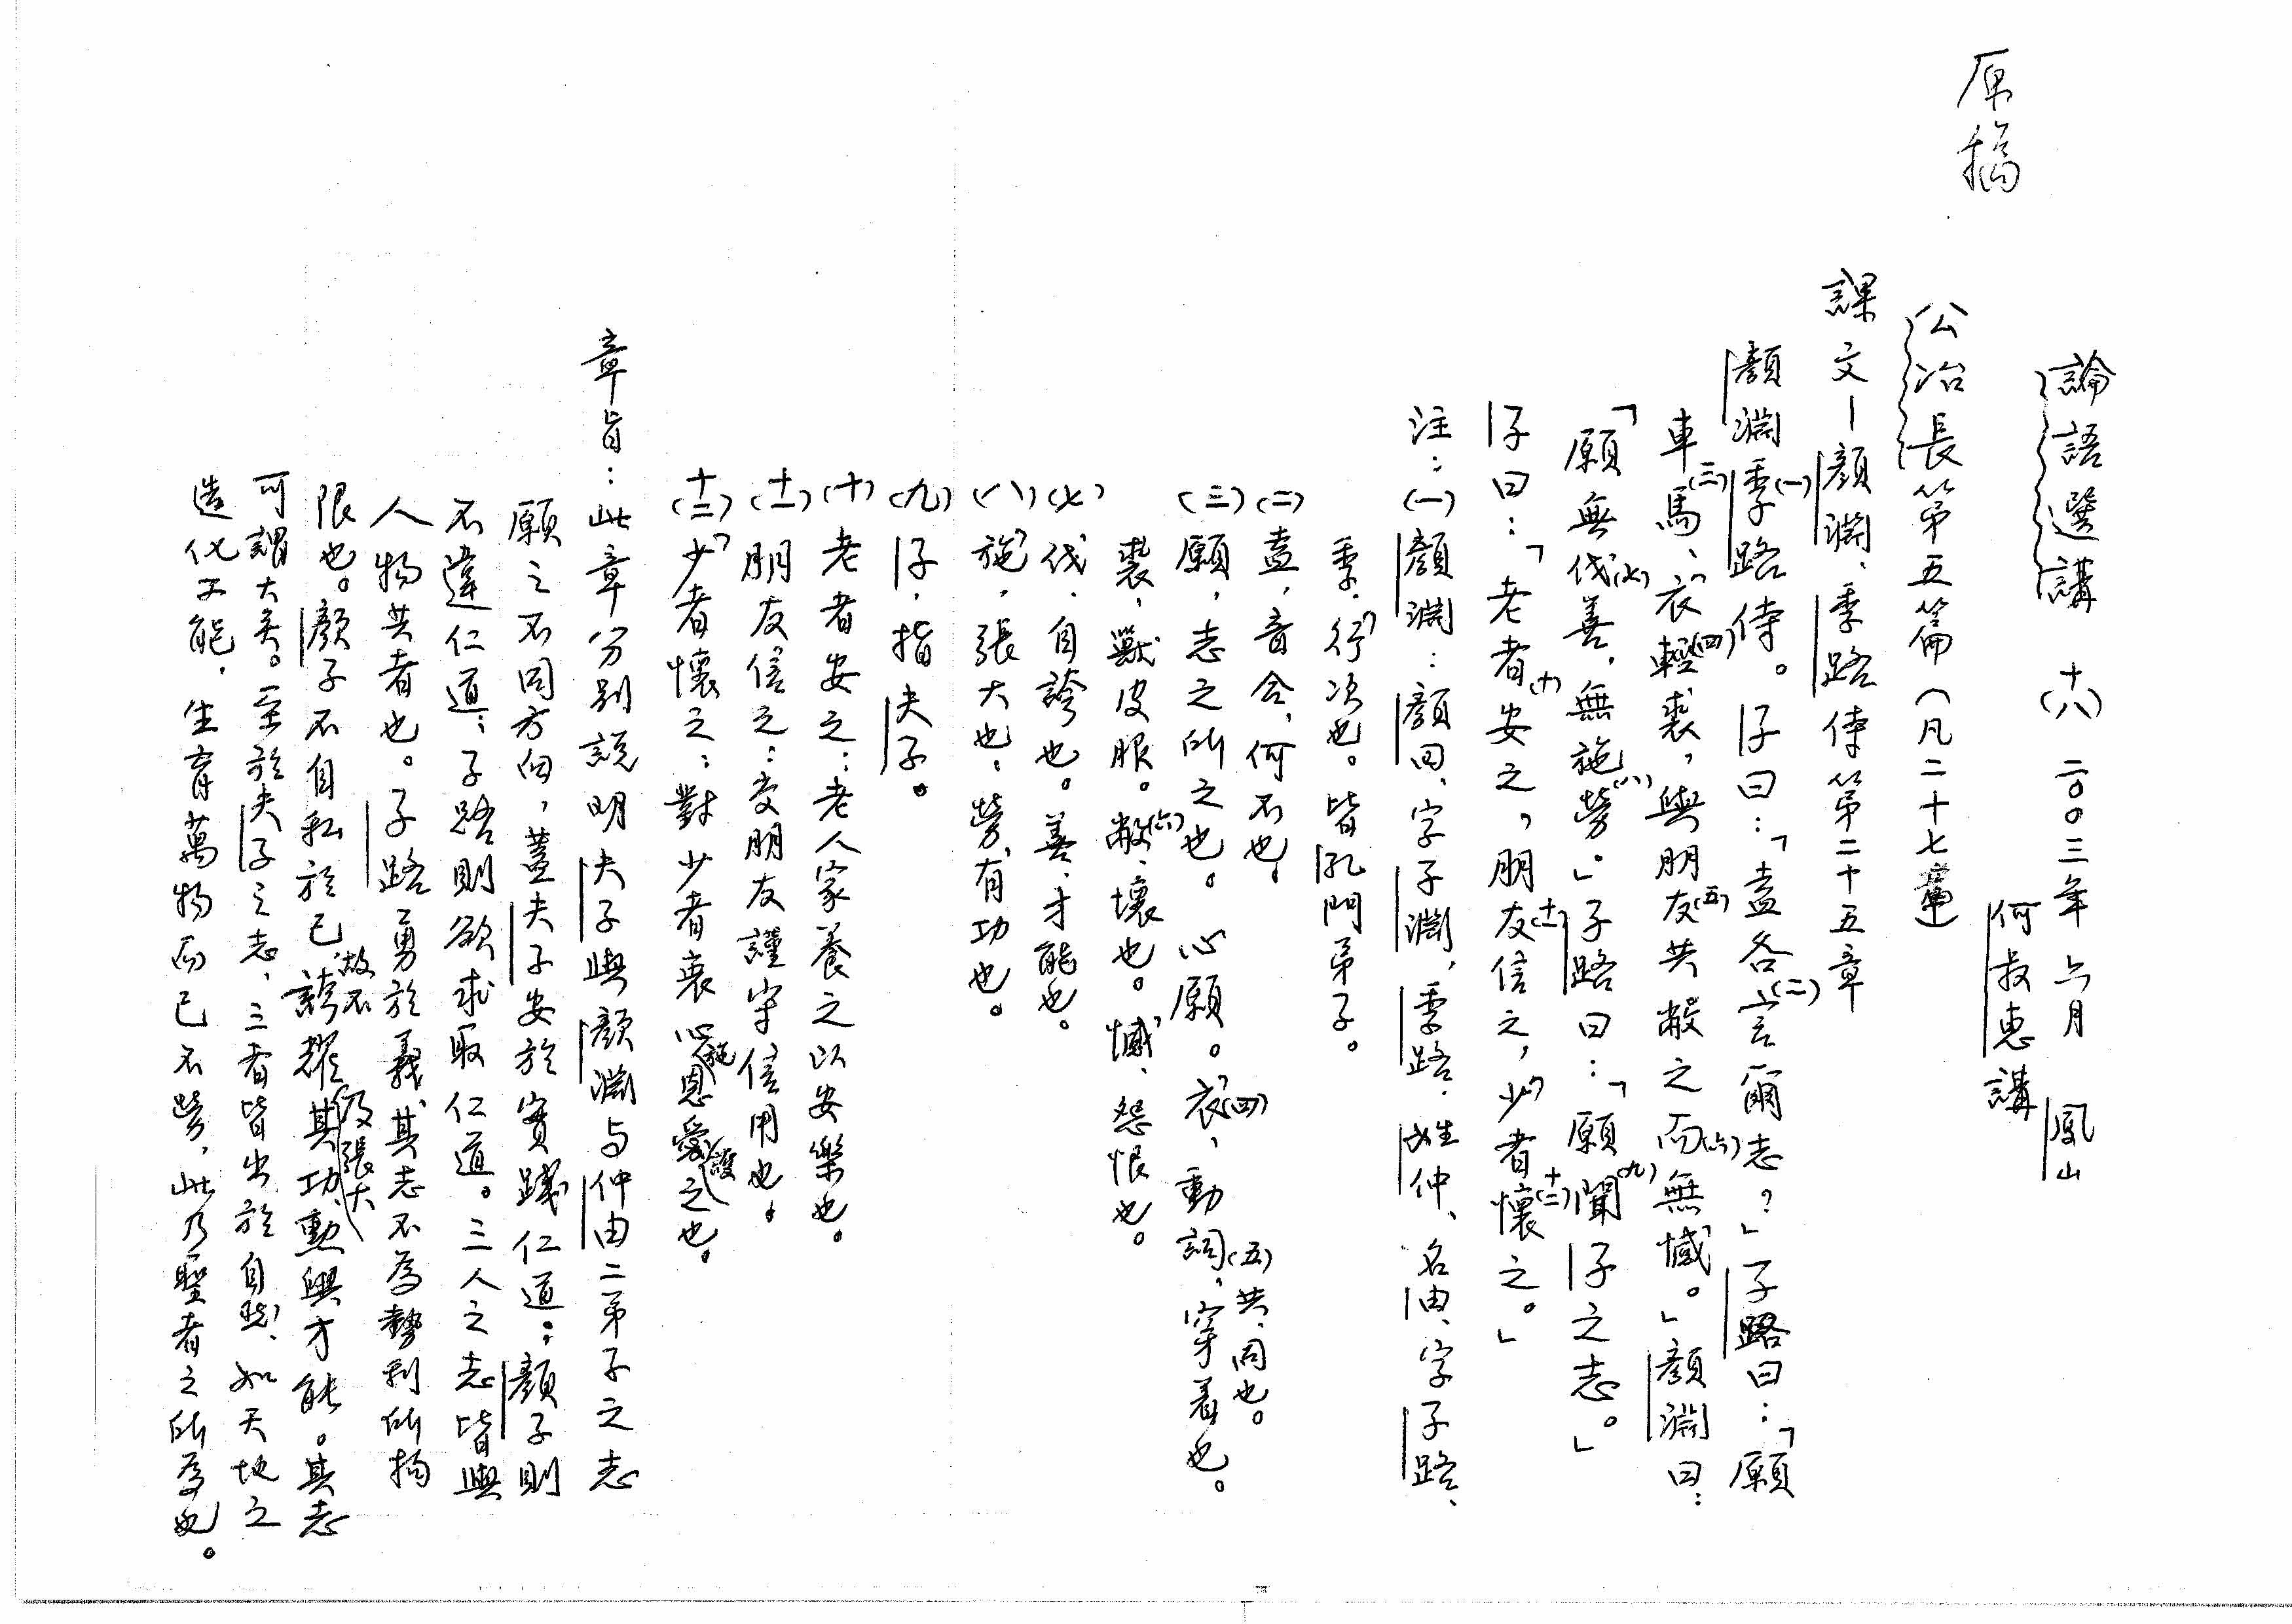 原稿
論語選講 (十八) 二〇〇三年六月 鳳山
何叔惠講
公冶長第五篇(凡二十七章)
課文—顏淵、季路侍第二十五章
顏淵季路(一)侍。子曰:「盍各(二)言爾志?」子路曰:「願
車馬(三)、衣輕(四)裘,與朋友(五)共敝之而(六)無憾。」顏淵曰:
「願無伐(七)善,無施勞(八)。」子路曰:「願聞(九)子之志。」
子曰:「老者(十)安之,朋友(十一)信之,少者(十二)懷之。」
注:(一)顏淵:顏回、字子淵,季路、姓仲、名由、字子路、
季、行次也。皆孔門弟子。
(二)盍,音合,何不也。
(三)願,志之所之也。心願。(四)衣、動詞,穿着也。(五)共、同也。
裘,獸皮服。(六)敝、壞也。憾、怨恨也。
(七)伐、自誇也。善、才能也。
(八)施,張大也,勞、有功也。
(九)子,指夫子。
(十)老者安之:老人家養之以安樂也。
(十一)朋友信之:交朋友謹守信用也。
(十二)少者懷之:對少者衷心施恩愛護之也。
章旨:此章分別說明夫子與顏淵与仲由二弟子之志
願之不同方向,蓋夫子安於實踐仁道;顏子則
不違仁道;子路則欲求取仁道。三人之志皆與
人物共者也。子路勇於義、其志不為勢利所拘
限也。顏子不自私於己、故不誇耀其功勳及張大與才能。其志
可謂大矣。至於夫子之志、三者皆出於自然、如天地之
造化工能,生育萬物而已不勞,此乃聖者之所為也。